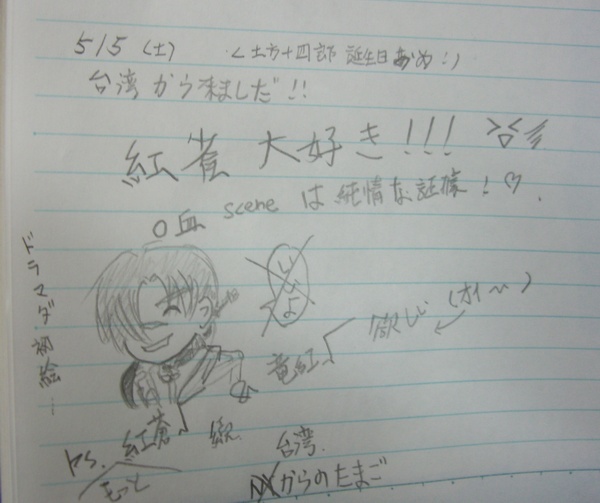 5/5 (土) (土方十四郎 誕生日おめ!)
台湾から来ました!!
紅雀 大好き!!!
○血 scene は純情な証據!♡
ドラマダ 初絵…
いいよ
竜紅 欲しい (オイ~)
P.S. 紅蒼
もっと
台湾
からのたまご